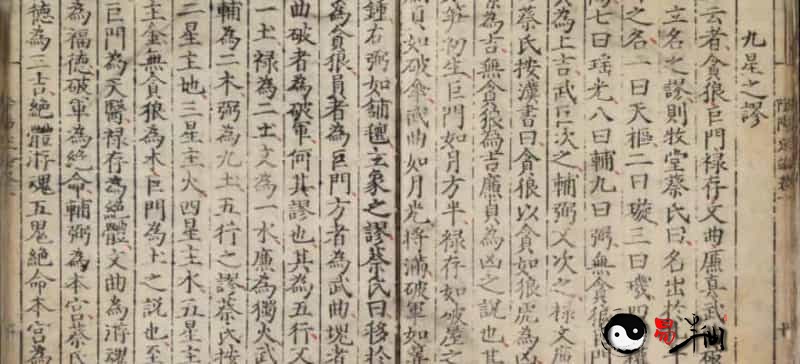 九星之謬
云者貪狼巨門禄存文曲廉貞武
立名之謬則牧堂蔡氏曰名出於
之名一曰天樞二曰璇三曰璣
陽七曰瑶光八曰輔九曰弼無貪狼
為上吉武巨次之輔弼又次之禄文廉
蔡氏按漢書曰貪狼以貪如狼虎為凶
為吉無貪狼為吉廉貞為凶之說也其
笋初生巨門如月方半禄存如破屋之
貞如破傘武曲如月光將滿破軍如
鍾右弼如鋪氊立象之謬蔡氏曰移於
為貪狼員者為巨門方者為武曲塊者
曲破者為破軍何其謬也其為五行又
一土禄為二土文為一水廉為獨火武
輔為二木弼為九土五行之謬蔡氏按
二星主地三星主火四星主水五星主
主金無貪狼為木巨門為土之說也至
巨門為天醫禄存為絶體文曲為游魂
為福德破軍為絶命輔弼為本宮蔡氏
德為三吉絶體游魂五鬼絶命本宮為